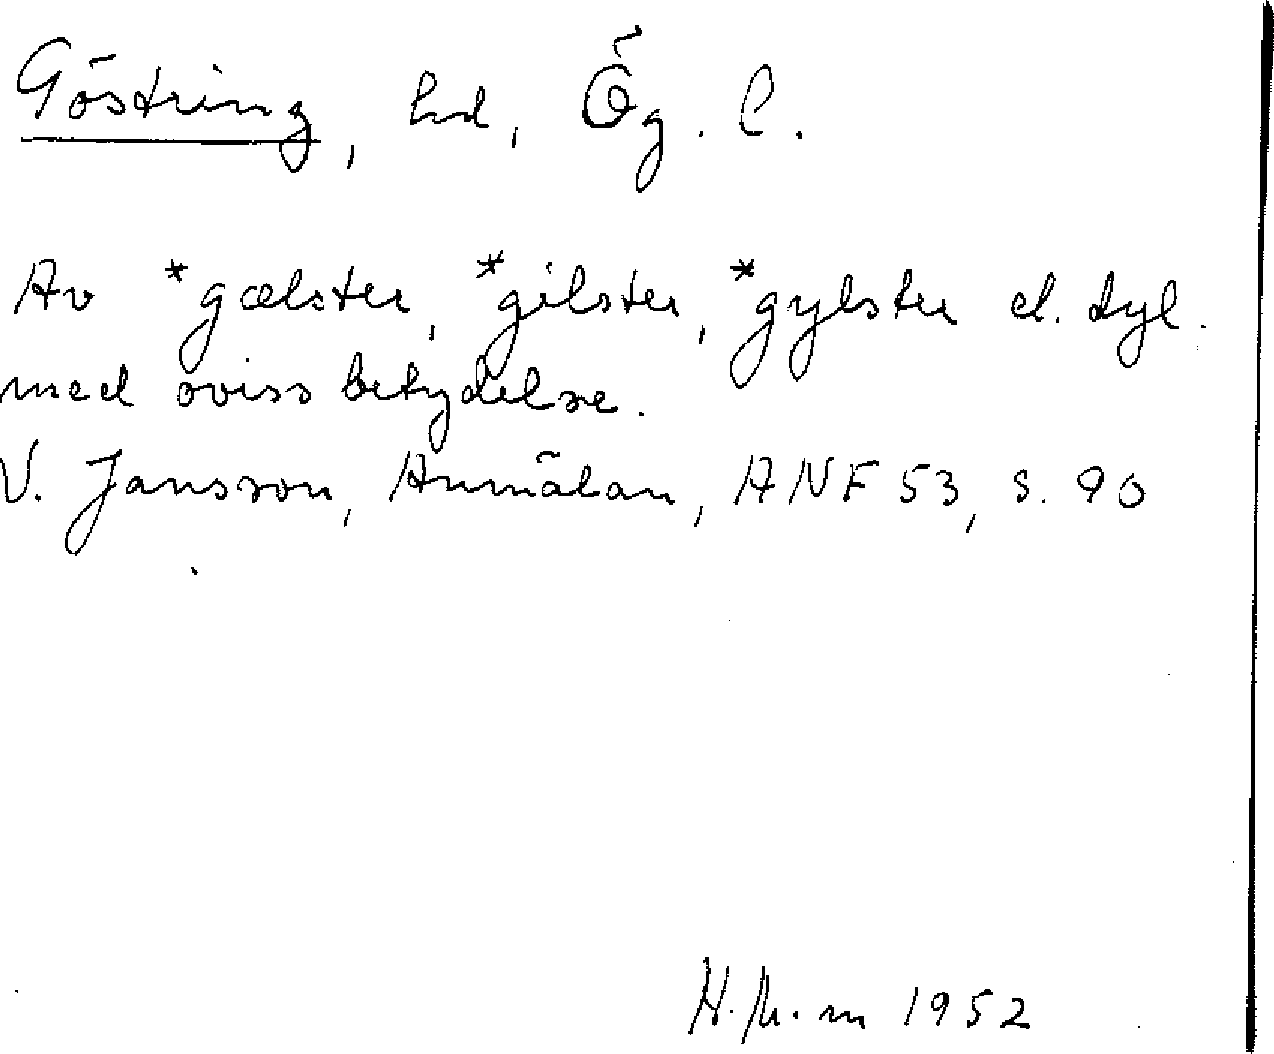 Göstring, hd, Ög. l.
Av *gælster, *gilster, *gylster el. dyl.
med oviss betydelse.
V. Jansson, Anmälan, ANF 53, s. 90
1952